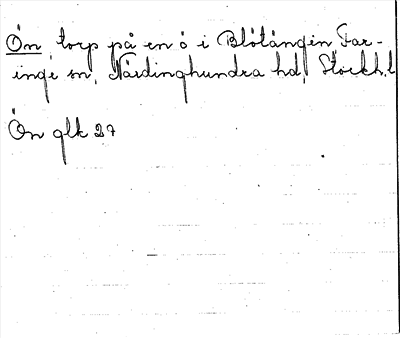 Ön torp på en ö i Blötången Far-
inge sn, Närdinghundra hd, Stockh.l
Ön glk 27